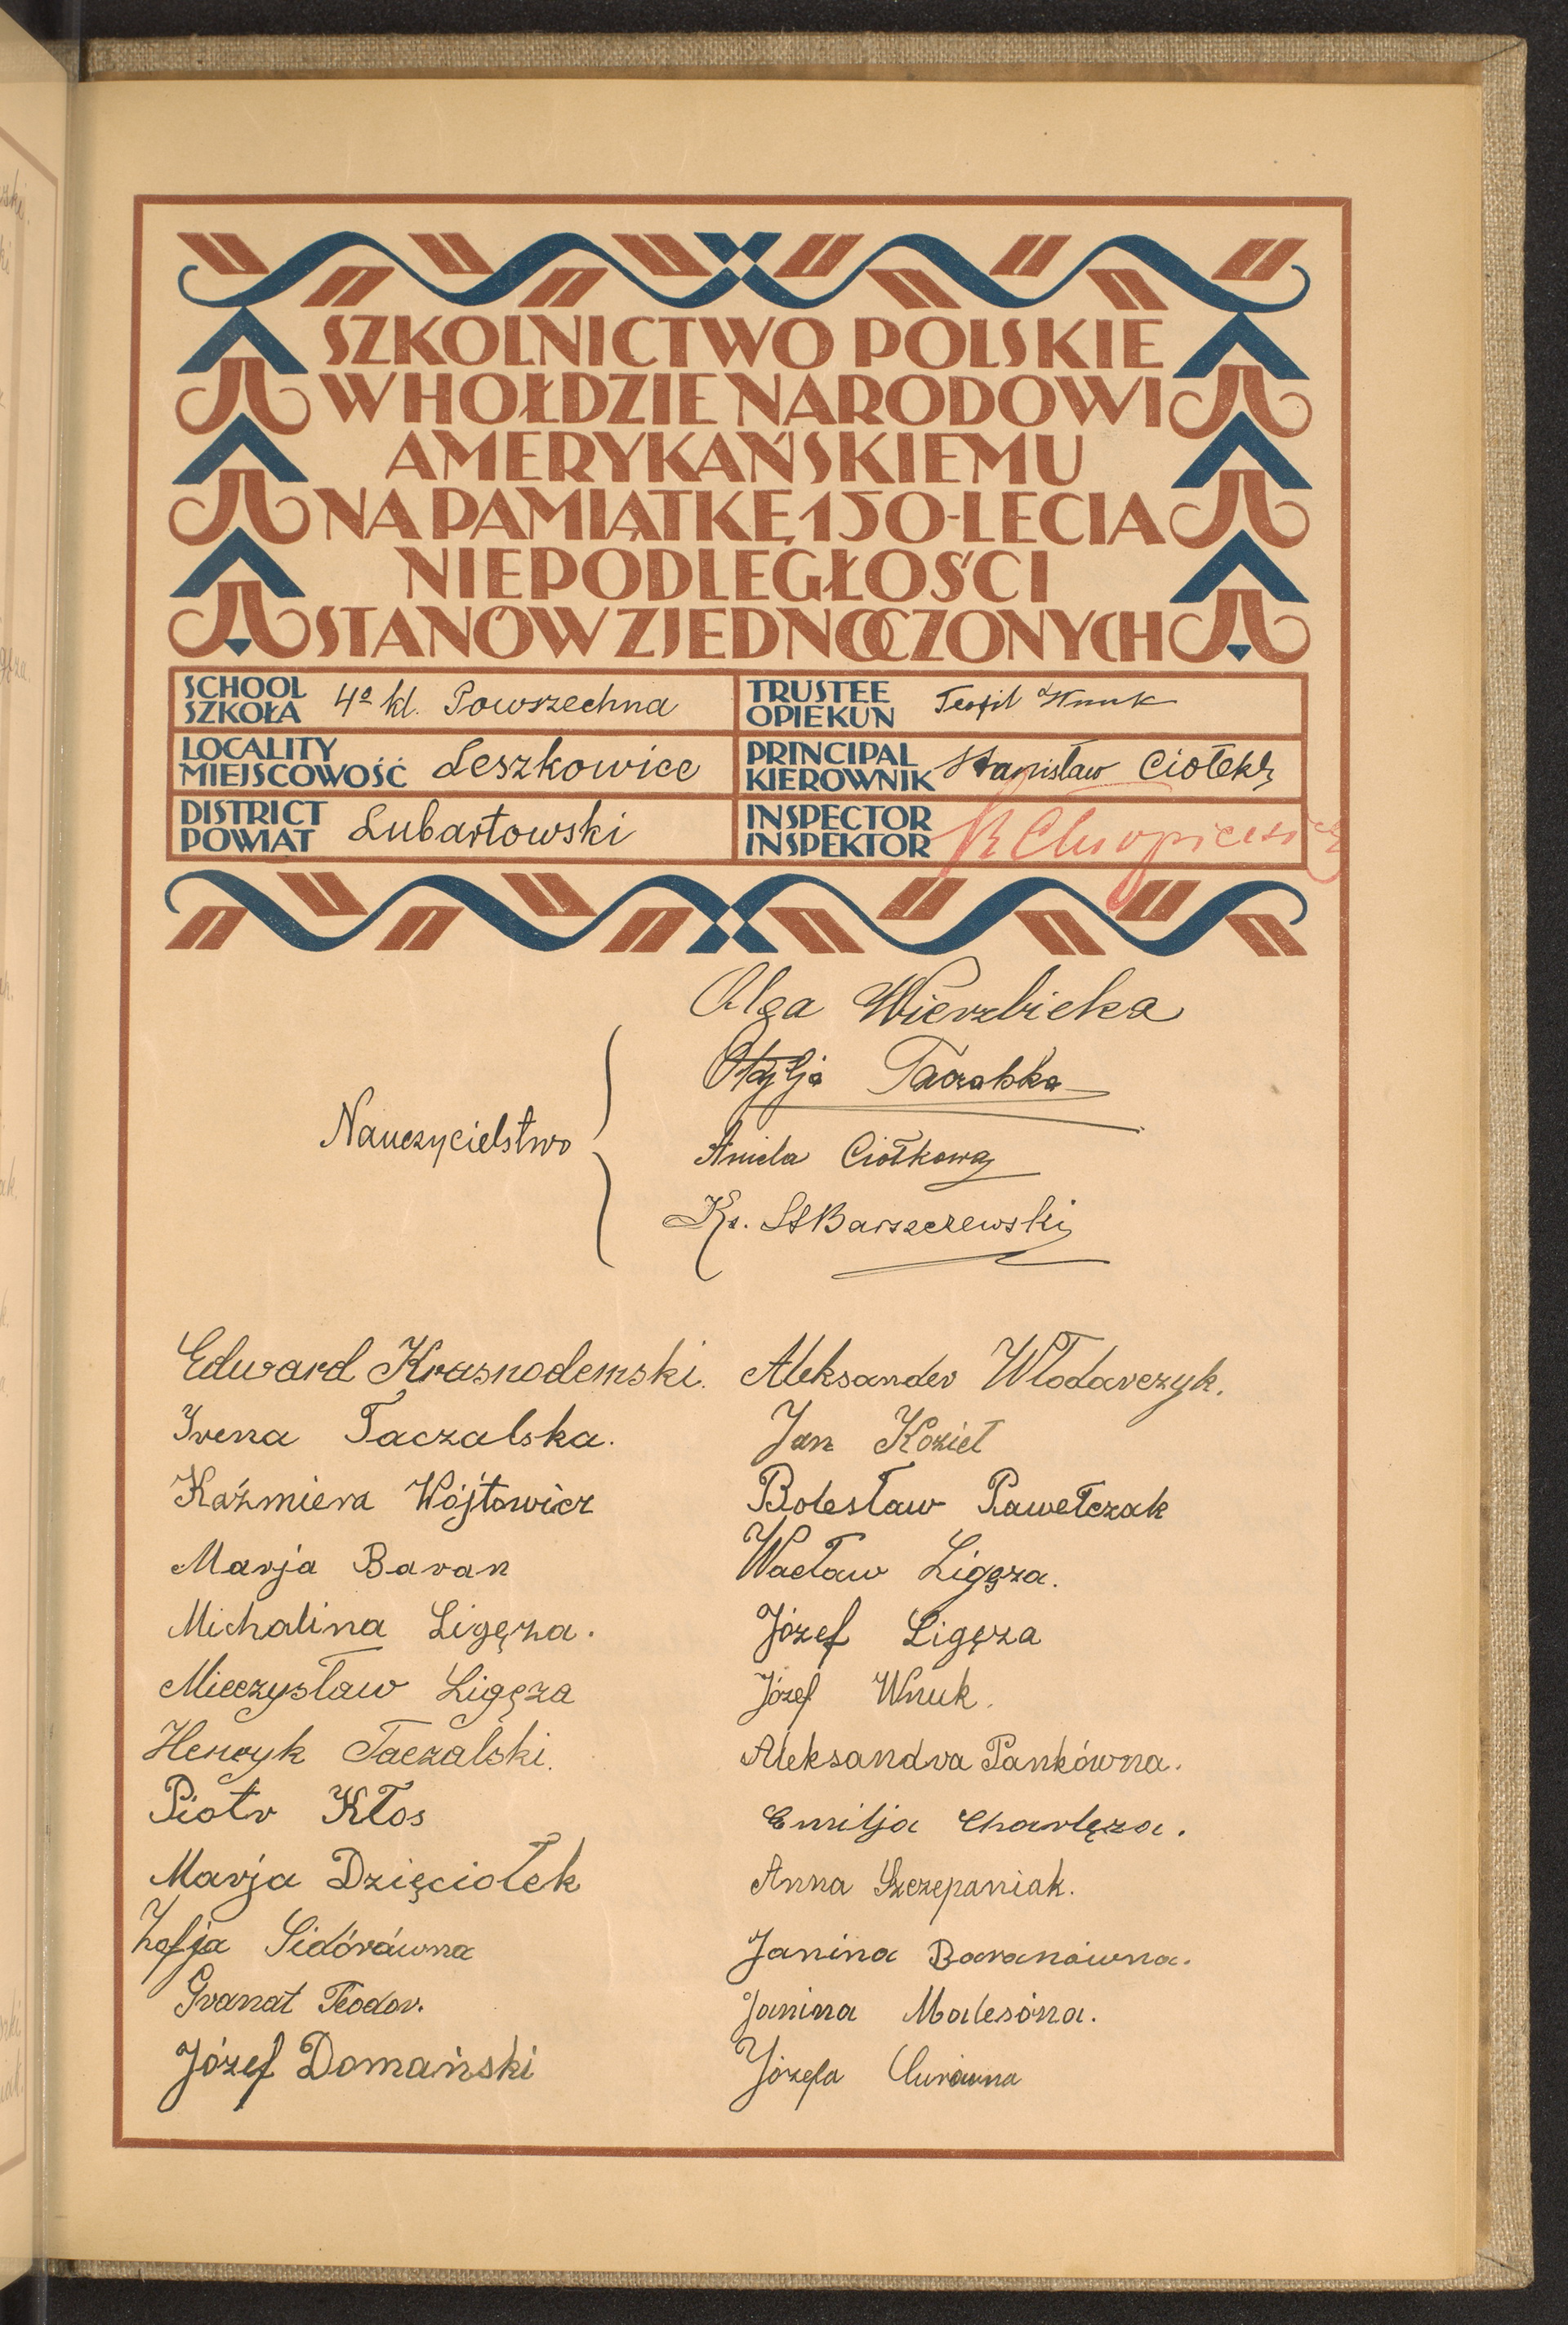 SZKOLNICTWO POLSKIE
W HOŁDZIE NARODOWI
AMERYKAŃSKIEMU
NA PAMIĄTKĘ 150-LECIA
NIEPODLEGŁOŚCI
STANÓW ZJEDNOCZONYCH
SCHOOL
SZKOŁA 4º kl. Powszechna
TRUSTEE
OPIEKUN Teofil Wnuk
LOCALITY
MIEJSCOWOŚĆ Leszkowice
PRINCIPAL
KIEROWNIK Stanisław Ciołek
DISTRICT
POWIAT Lubartowski
INSPECTOR
INSPEKTOR
Nauczycielstwo
Olga Wierzbicka
Otylja Taczalska
Aniela Ciołkowa
Ks. St Barszczewski
Edward Krasnodemski.
Irena Taczalska.
Kaźmiera Wójtowicz
Marja Baran
Michalina Ligęza.
Mieczysław Ligęza
Henryk Taczalski.
Piotr Kłos
Marja Dzięciołek
Zofja Sidórówna
Granat Teodor.
Józef Domański
Aleksander Włodarczyk.
Jan Kozieł
Bolesław Pawełczak
Wacław Ligęza.
Józef Ligęza
Józef Wnuk.
Aleksandra Pankówna.
Emilja Charlęza.
Anna Szczepaniak.
Janina Baranówna.
Janina Malesóna.
Józefa